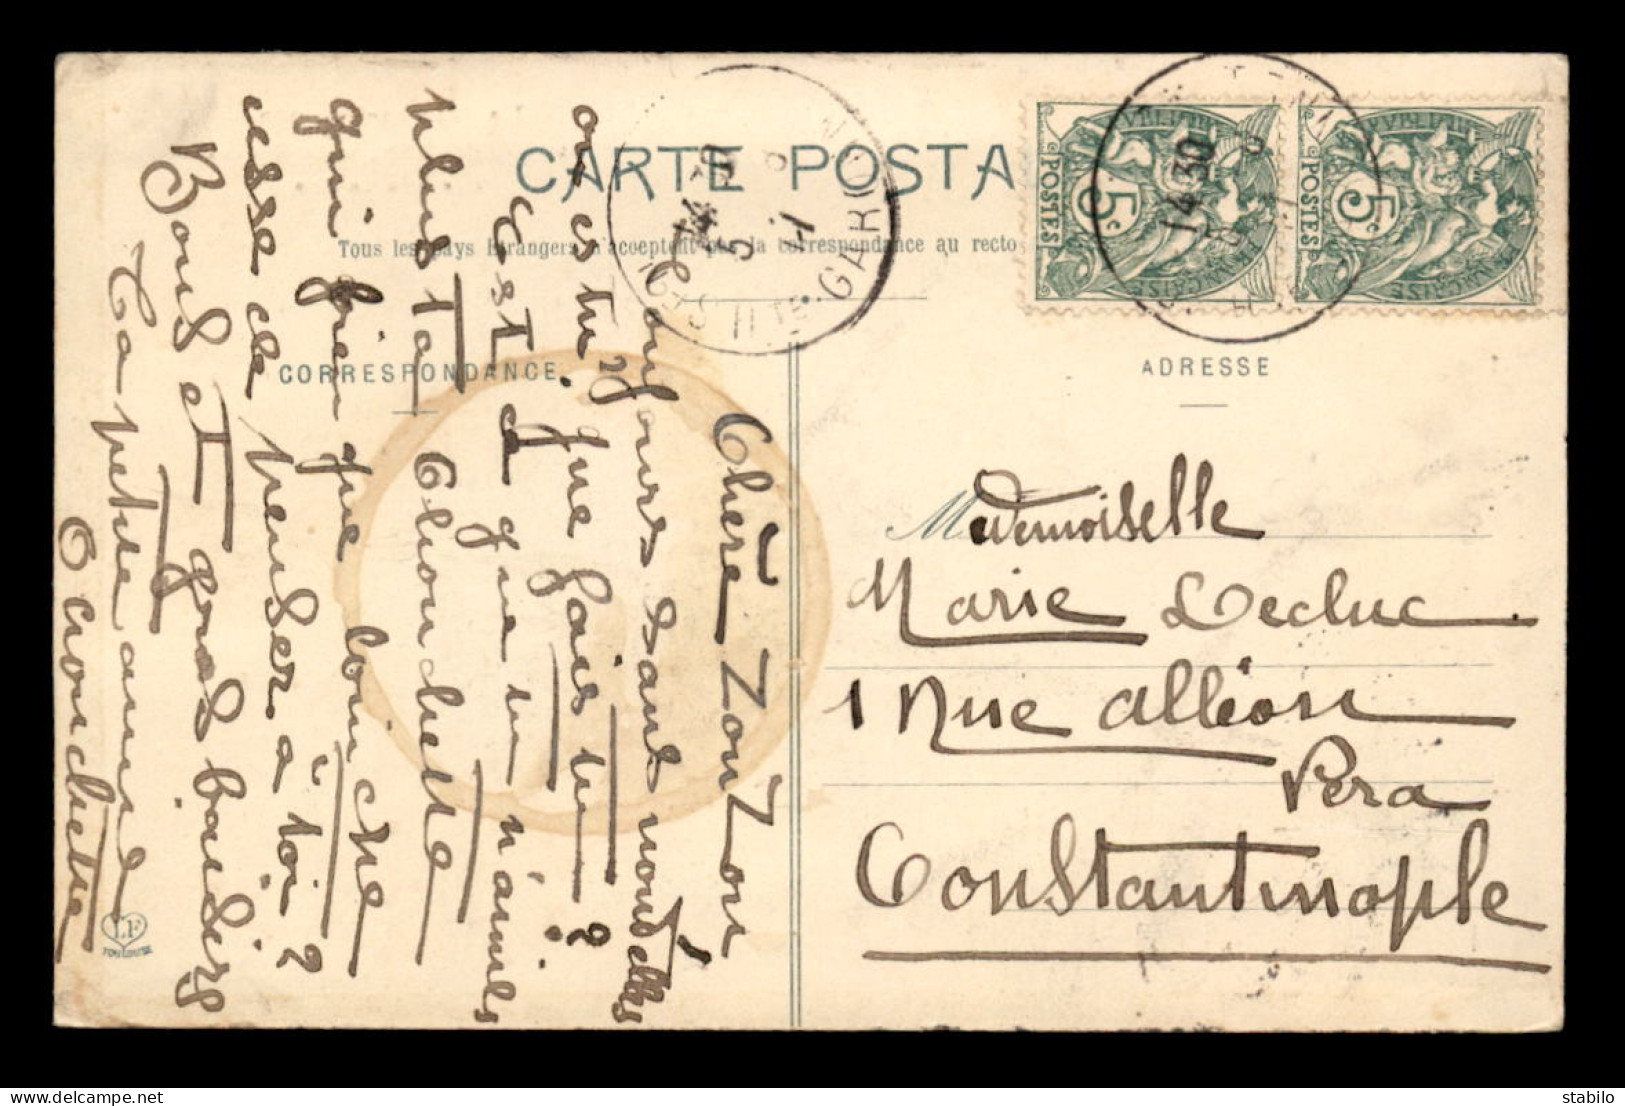 CARTE POSTA
Tous les pays étrangers n'acceptent pas la correspondance au recto
CORRESPONDANCE
ADRESSE
POSTES
5c
POSTES
5c
14 30
GARONNE
Chère Zon Zon
Toujours sans nouvelles
où es tu ? que fais tu ?
C'est-à que tu n'aimes
plus ta Chouchette
qui bien que loin ne
cesse de penser à toi ?
Bons et gros baisers
Ta petite amie
Chouchette
LF
TOULOUSE
Mademoiselle
Marie Leduc
1 Rue Alléon
Pera
Constantinople
delcampe.net
stabilo